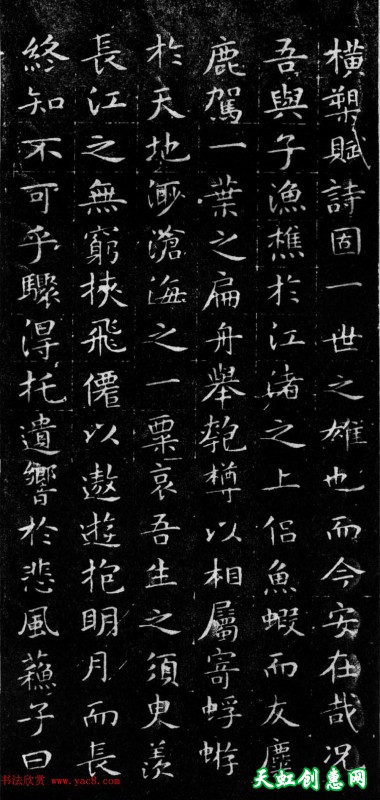 橫槊賦詩固一世之雄也而今安在哉況
吾與子漁樵於江渚之上侶魚蝦而友麋
鹿駕一葉之扁舟舉匏樽以相屬寄蜉蝣
於天地渺滄海之一粟哀吾生之須臾羨
長江之無窮挾飛僊以遨遊抱明月而長
終知不可乎驟得托遺響於悲風蘓子曰
书法欣赏 www.yac8.com
天虹创惠网